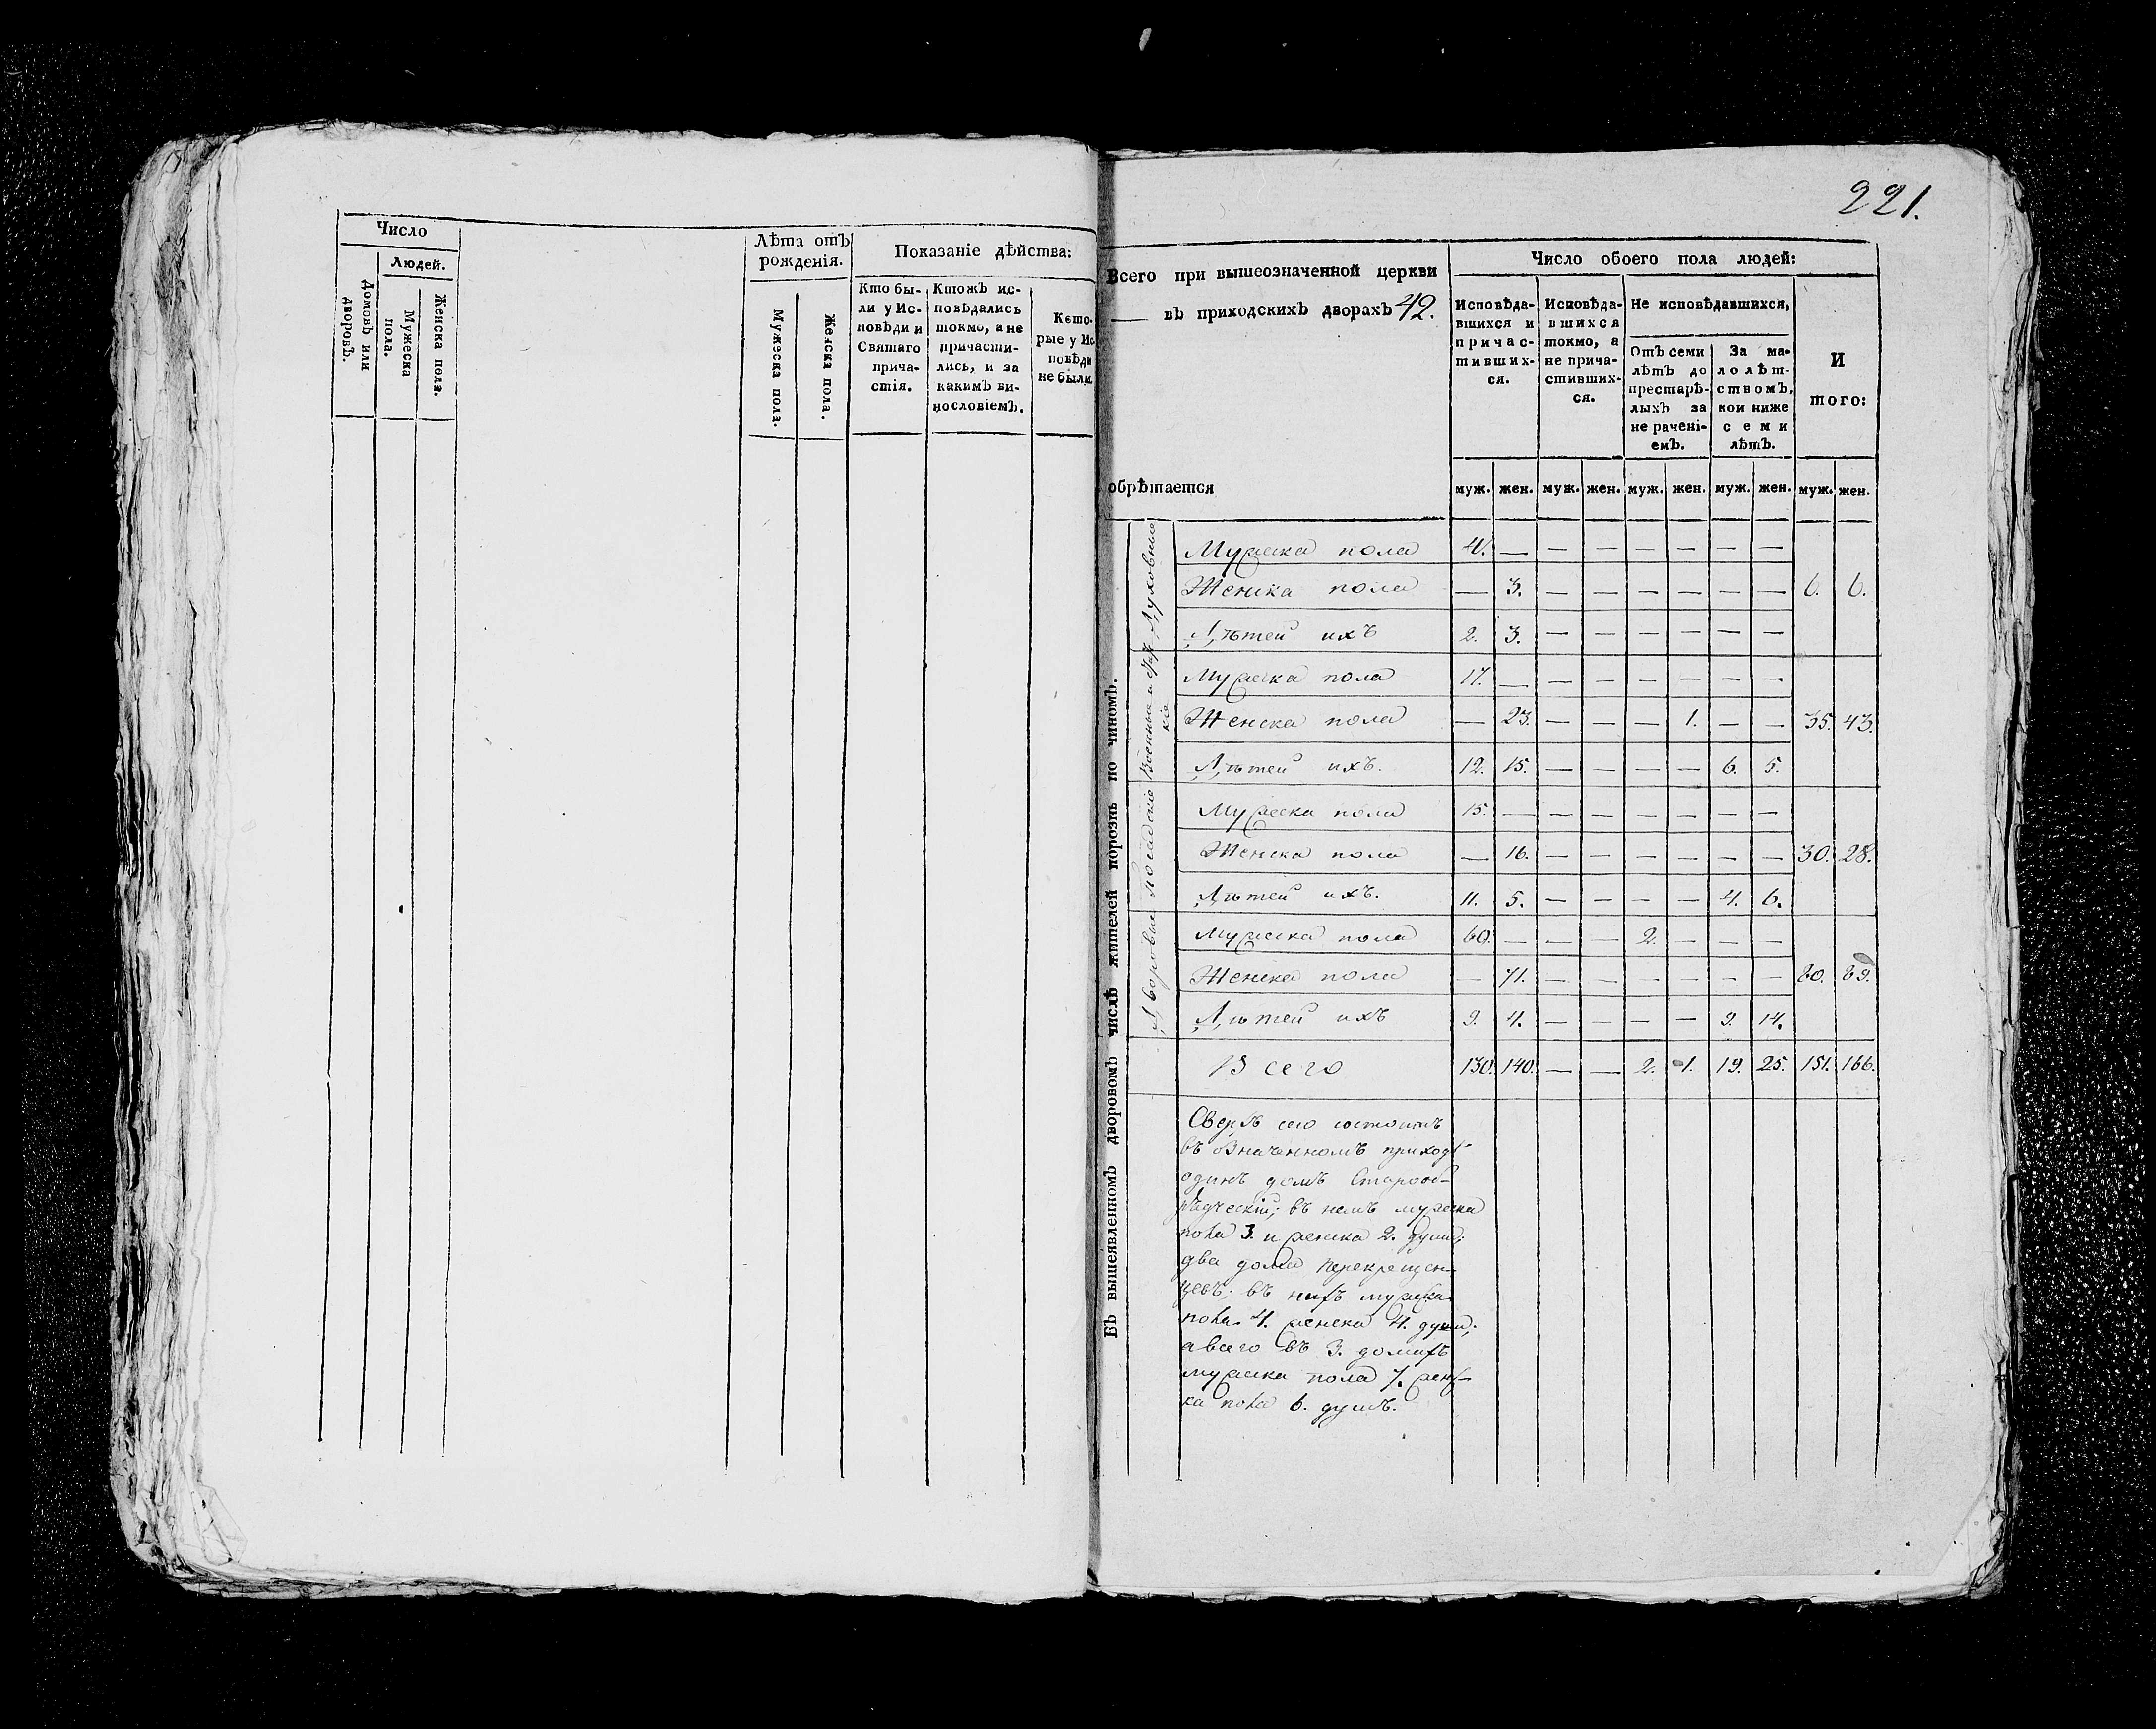 Число
Людей.
Домовъ или
дворовъ.
Мужеска
пола.
Женска пола.
Лѣта отъ
рожденія.
Мужеска пола.
Женска пола.
Показаніе дѣйства:
Кто бы-
ли у Ис-
повѣди и
Святаго
прича-
стія.
Ктожъ ис-
повѣдались
токмо, а не
причасти-
лись, и за
какимъ ви-
нословіемъ.
Кото-
рые у Ис
повѣди
не были.
221.
Всего при вышеозначенной церкви
въ приходскихъ дворахъ 42.
обрѣтается
Число обоего пола людей:
Исповѣда-
вшихся и
причас-
тивших-
ся.
Исповѣда-
вшихся
токмо, а
не прича-
стивших-
ся.
Не исповѣдавшихся,
Отъ семи
лѣтъ до
престарѣ-
лыхъ за
не раченi-
емъ.
За ма-
лолѣт-
ствомъ,
кои ниже
семи
лѣтъ.
И
того:
муж. жен. муж. жен. муж. жен. муж. жен. муж. жен.
Въ вышеявленномъ дворовомъ числѣ жителей порознь по чиномъ.
Духовные
Мужеска пола 4. — — — — — — —
Женска пола — 3. — — — — — — 6. 6.
Дѣтей ихъ 2. 3. — — — — — —
Военные и
Мужеска пола 17. — — — — — — —
Женска пола — 23. — — — 1. — — 35. 43.
Дѣтей ихъ. 12. 15. — — — — 6. 5.
Посадскіе
Мужеска пола 15. — — — — — — —
Женска пола — 16. — — — — — — 30. 28.
Дѣтей ихъ. 11. 5. — — — — 4. 6.
Дворовые
Мужеска пола 60. — — — 2. — — —
Женска пола — 71. — — — — — — 80. 89.
Дѣтей ихъ 9. 4. — — — — 9. 14.
Всего 130. 140. — — 2. 1. 19. 25. 151. 166.
Сверхъ сего состоитъ
въ означенномъ приходѣ
одинъ домъ Старооб-
рядческій; въ немъ мужеска
пола 3. и женска 2. души;
два дома перекрещен-
цевъ; въ нихъ мужеска
пола 4. женска 4. души;
а всего въ 3. домахъ
мужеска пола 7. женс-
ка пола 6. душъ.